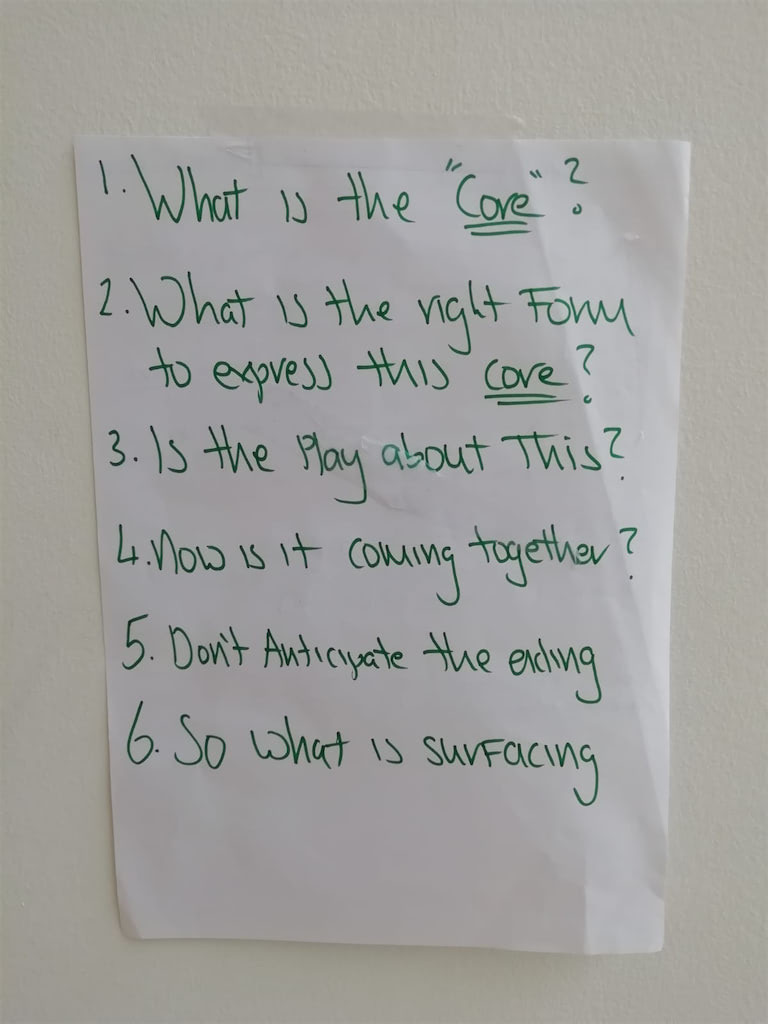 1. What is the "Core"?
2. What is the right Form
to express this core?
3. Is the Play about This?
4. How is it coming together?
5. Don't Anticipate the ending
6. So what is surfacing